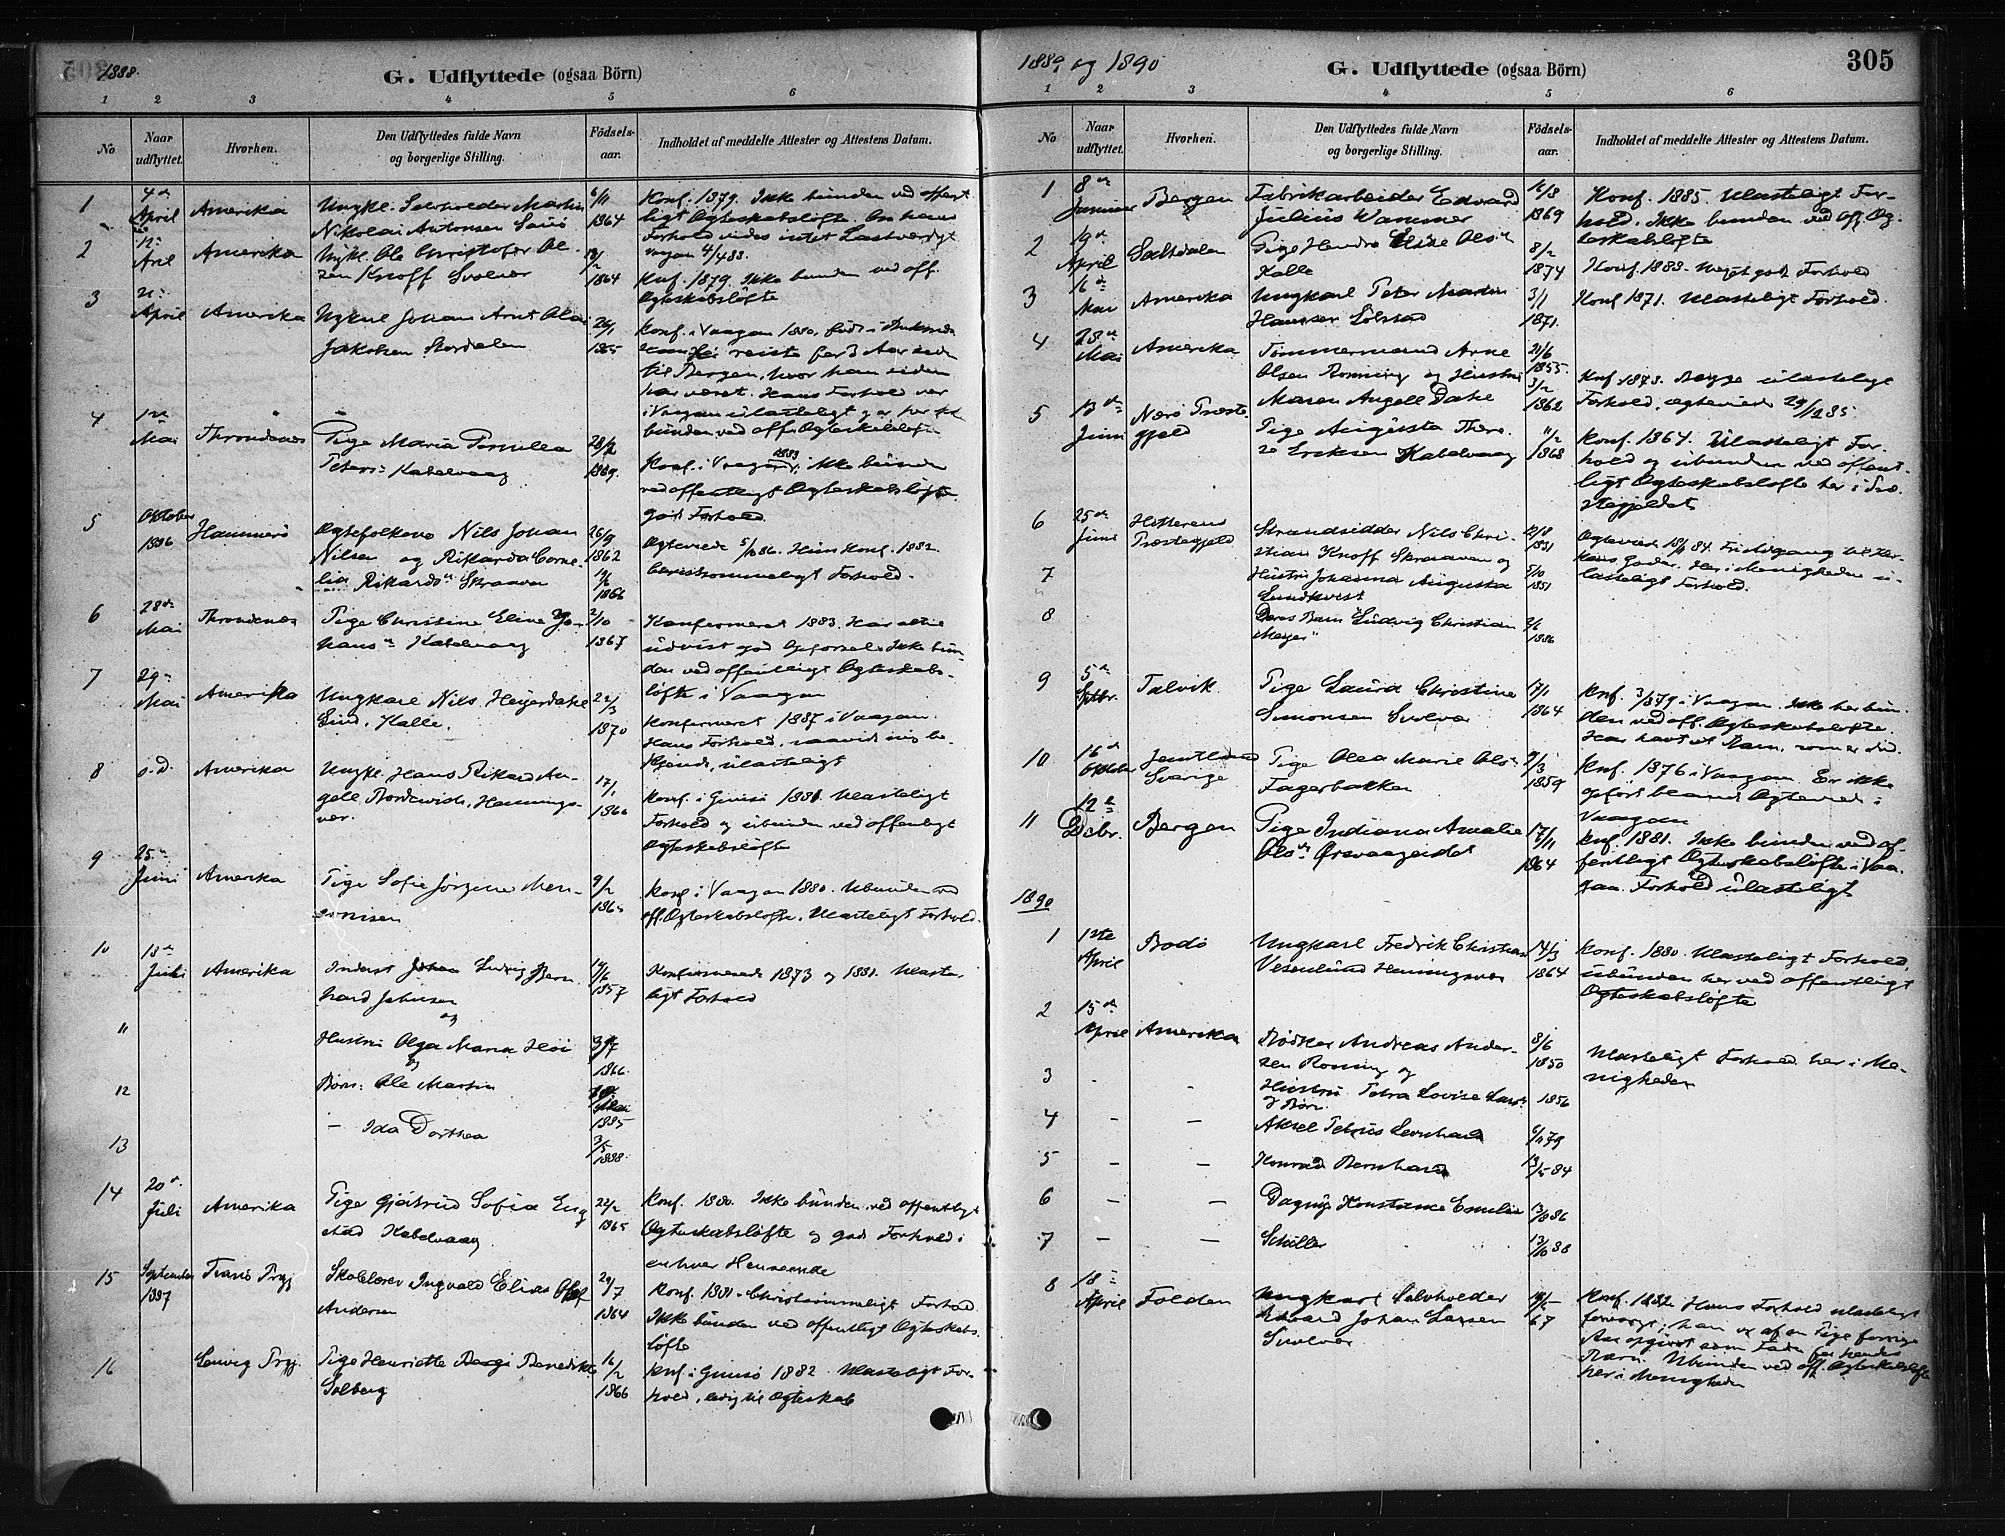 1888.
G. Udflyttede (ogsaa Börn)
1 2 3 4 5 6
No
Naar udflyttet.
Hvorhen.
Den Udflyttedes fulde Navn og borgerlige Stilling.
Födsels-aar.
Indholdet af meddelte Attester og Attestens Datum.
1 4de April Amerika Ungkl. Selvholder Martin
Nikolai Antonsen
6/11 1864
Konf. 1879. Ikke bunden ved offent
ligt Ægteskabsløfte. Om hans
Forhold vides intet Lastværdigt
2 Amerika Ole Christofer Ol-
sen Knoff Svolvær
1864
Konf. 1879. Ikke bunden ved off.
Ægteskabsløfte
3 April Amerika Johan Arnt Olai
Jakobsen Stordalen
26/1 1865
Konf. i Vaagan 1880, født i
reiste for 3 Aar siden
til Bergen, hvor han siden
har været. Hans Forhold var
i Vaagan ulasteligt
bunden ved off. Ægteskabsløfte
4 Mai Throndenes Pige Maria Pernilla
Peters. Kabelvaag
28/2 1869.
Konf. i Vaagan 1883, ikke bunden
ved offentligt Ægteskabsløfte
godt Forhold.
5 Oktober 1886 Hammerö Ægtefolkene Nils Johan
Nilsen og Rikarda Corne-
lia Rikards. Skraaven
26/9 1862
1866
Ægteviede 5/10 86. Hun konf. 1882.
christsommeligt Forhold.
6 28de Mai Throndenes Pige Christine Eline Jo-
hans. Kabelvaag
2/10 1867
Konfirmeret 1883. Har altid
udvist god Opførsel. Ikke bun-
den ved offentligt Ægteskabs-
løfte i Vaagan
7 29. Mai Amerika Ungkarl Nils Heyerdahl
Lind, Kalle.
22/3 1870
Konfirmeret 1887 i Vaagan.
Hans Forhold, saavidt mig be-
kjendt, ulasteligt
8 s.d. Amerika Ungkl. Hans Rikard An-
gell Bordevick, Hennings-
vær.
17/1 1866
Konf. i Gimsö 1881. Ulasteligt
Forhold og ubunden ved offenligt
Ægteskabsløfte
9 25. Juni Amerika Pige Sofie Jørgine
9/2
Konf. i Vaagan 1880. Ubunden ved
off. Ægteskabsløfte. Ulasteligt Forhold.
10 18de Juli Amerika Inderst Johan Ludvig Bern-
hard Johnsen
og
1857
Konfirmerede 1873 og 1881. Ulaste-
ligt Forhold
11 Hustru Olga Maria Høi
og
1866.
12 Børn: Ole Martin
1885
13 — Ida Dorthea
3/5 1888.
14 20de Juli Amerika Pige Gjertrud Sofia Eng
stad Kabelvaag
22/2 1865
Konf. 1880. Ikke bunden ved offentligt
Ægteskabsløfte og godt Forhold i
enhver Henseende
15 September 1887 Tranö Prgj Skolelærer Ingvald Elias Olaf
Andersen
29/7 1864
Konf. 1881. Christsömmeligt Forhold.
Ikke bunden ved offentligt Ægteskabs-
løfte
16 Lenvig Prgj. Pige Henriette Benedikte
Solberg
16/2 1866
Konf. i Gimsö 1882. Ulasteligt For-
hold, ledig til Ægteskab
1889 og 1890
G. Udflyttede (ogsaa Börn)
305
1 2 3 4 5 6
No
Naar udflyttet.
Hvorhen.
Den Udflyttedes fulde Navn og borgerlige Stilling.
Födsels-aar.
Indholdet af meddelte Attester og Attestens Datum.
1 8de Januar Bergen Fabrikarbeider Edvard
Julius Wammer
1869
Konf. 1885. Ulasteligt For-
hold. Ikke bunden ved off. Æg-
teskabsløfte
2 19de April Saltdalen Pige Elise Ols.
Kalle
8/2 1874
Konf. 1888. Meget godt Forhold
3 16de Mai Amerika Ungkarl Peter Martin
Hansen Solstad
3/1 1871.
Konf 1871. Ulasteligt Forhold.
4 28de Mai Amerika Tømmermand Arne
Olsen Rønning og Hustru
Maren Angell Dahl
21/6 1855.
3/2 1862
Konf. 1873. Begge ulasteligt
Forhold, ægteviede 29/12 85
5 13de Juni Nærö Præste
gjeld Pige Augusta There-
se Eriksen Kabelvaag
11/2 1868
Konf. 1864. Ulasteligt For-
hold og ubunden ved offent-
ligt Ægteskabsløfte her i Præ-
stegjeldet
6 25de Juni Hitterens
Præstegjeld Strandsidder Nils Chri-
stian Knoff Skraaven og
12/8 1831
Ægteviede 84.
Her i Menigheden u-
lasteligt Forhold.
7 Hustru Johanna Augusta
Lundkvist
5/10 1851
8 Deres Barn Ludvig Christian
Meyer
1886
9 5de Septbr. Talvik Pige Laura Christine
Simonsen Svolvær
17/1 1864
Konf. 3/8 79 i Vaagan. Ikke her bun-
den ved off. Ægteskabsløfte.
Har havt et Barn, som er död.
10 16de Oktober Jemtland
Sverige Pige Olea Marie Ols.
Fagerbakken
9/3 1859
Konf. 1876 i Vaagan. Er ikke
opfört blandt Ægteviede i
Vaagan
11 12te Decbr. Bergen Pige Indiana Amalie
Ols. Örsvaageidet
17/11 1864
Konf. 1881. Ikke bunden ved of-
fentligt Ægteskabsløfte i Vaa-
gan. Forhold ulasteligt
1890
1 12te April Bodö Ungkarl Fredrik Christian
Vesterlund Henningsvær
14/3 1864
Konf. 1880. Ulasteligt Forhold,
ubunden her ved offentligt
Ægteskabsløfte
2 15de April Amerika Bödker Andreas Ander-
sen Rönning og
8/6 1850
Ulasteligt Forhold her i Me-
nigheden
3 - - Hustru Petra Lovise Lars.
og Börn.
1856
4 — — Aksel Petrus Leonhard
6/11 79
5 — — Konrad Bernhard
13/5 84
6 — — Dagny Konstanse Emilie
13/8 86
7 — — Schiller
13/10 88
8 18. April Folden Ungkarl Selvholder
Edvard Johan Larsen
Svolvær
67
Konf. 1882. Hans Forhold ulasteligt
forövrigt; han er af en Pige forrige
Aar opgivet som Fader for hendes
Barn. Ubunden ved off. Ægteskabsløfte
her i Menigheden